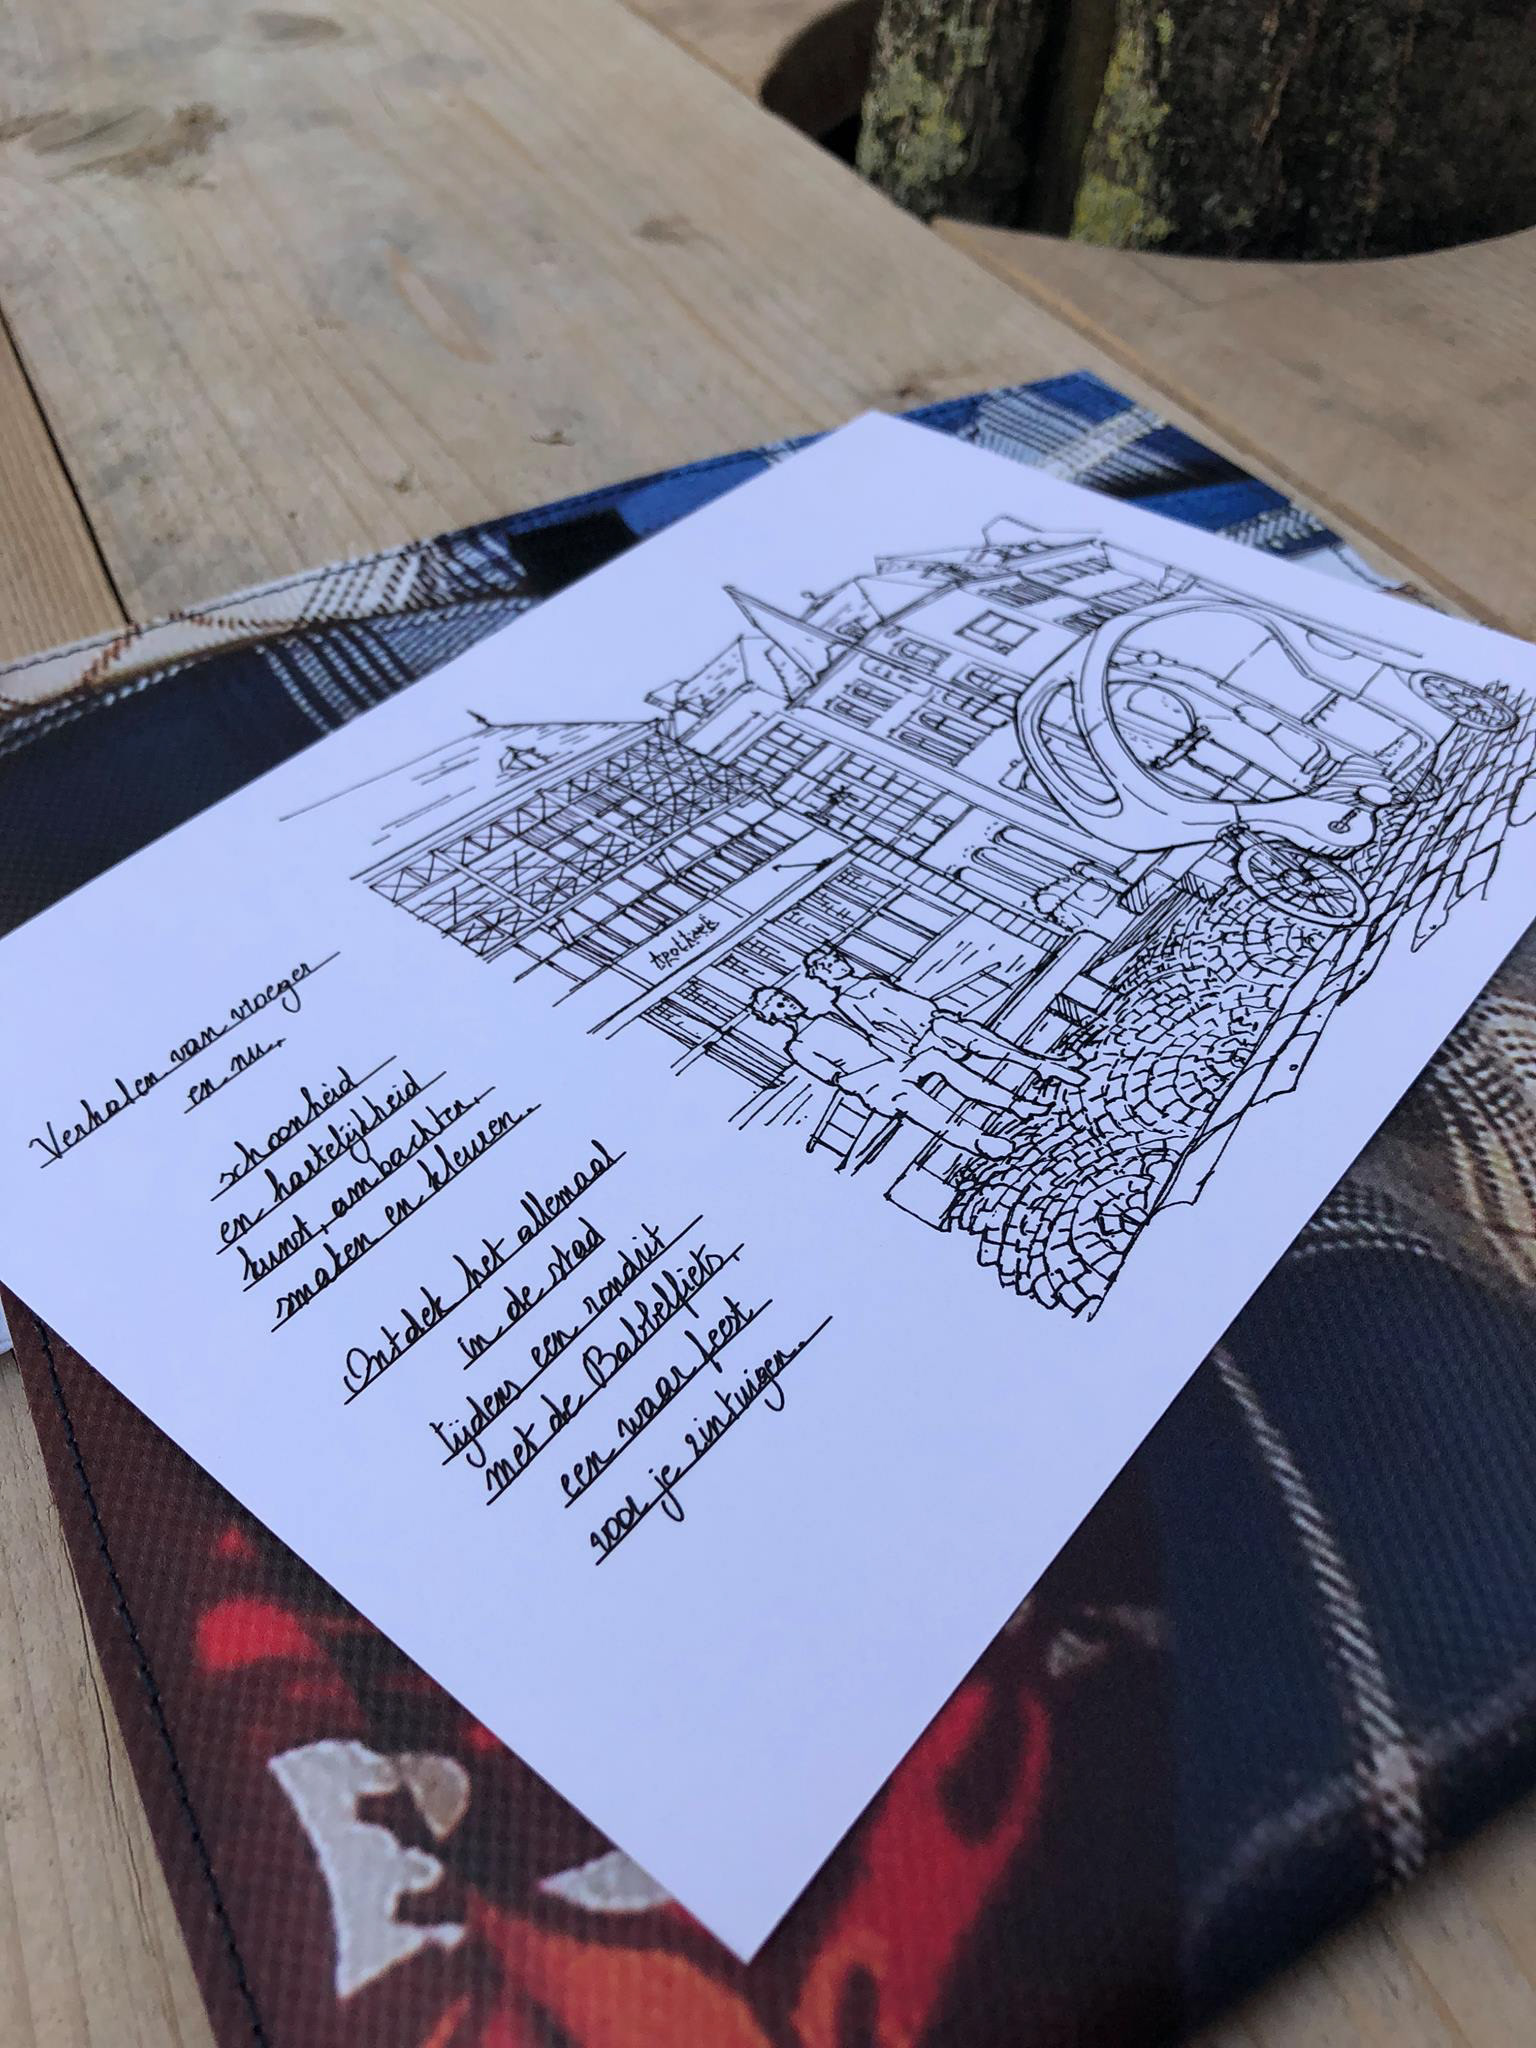 Apotheek
Verhalen van vroeger
en nu,
schoonheid
en hartelijkheid
kunst, ambachten,
smaken en kleuren.
Ontdek het allemaal
in de stad
tijdens een rondrit
met de Babbelfiets,
een waar feest
voor je zintuigen.